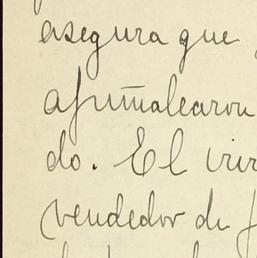 asegura que
apuñalearon
do. El
vendedor de